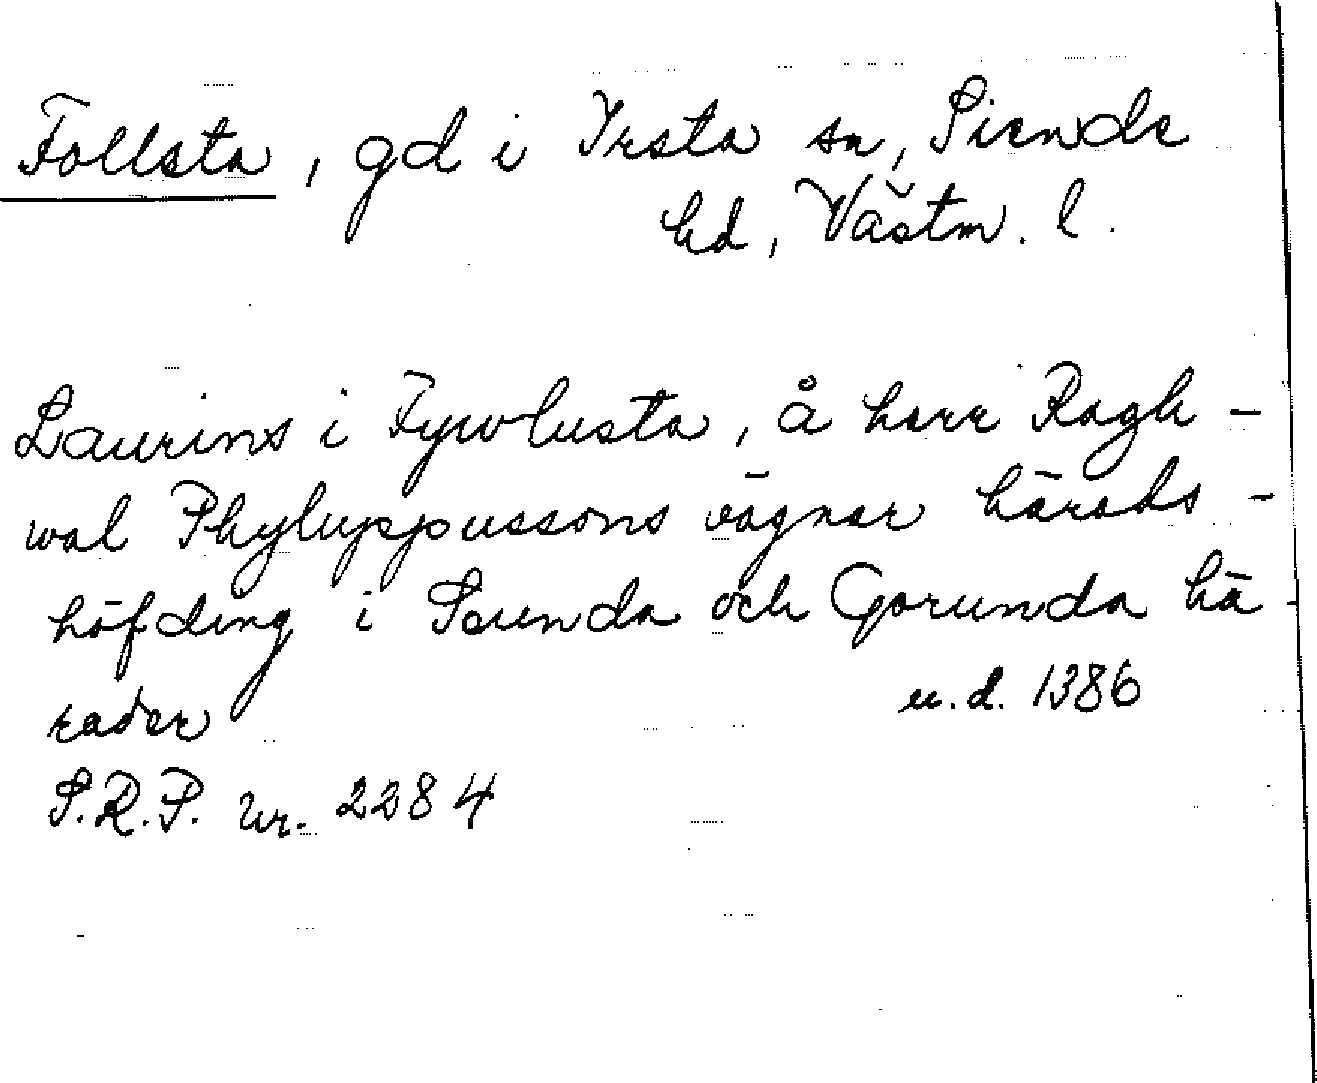 Follsta, gd i Irsta sn, Siende
hd, Västm. l.
Laurins i Fywlusta, å herr Ragh-
wal Phyluppussons vägnar härads-
höfding i Seunda och Gorunda hä-
rader
u.d. 1386
S.R.P. nr. 2284